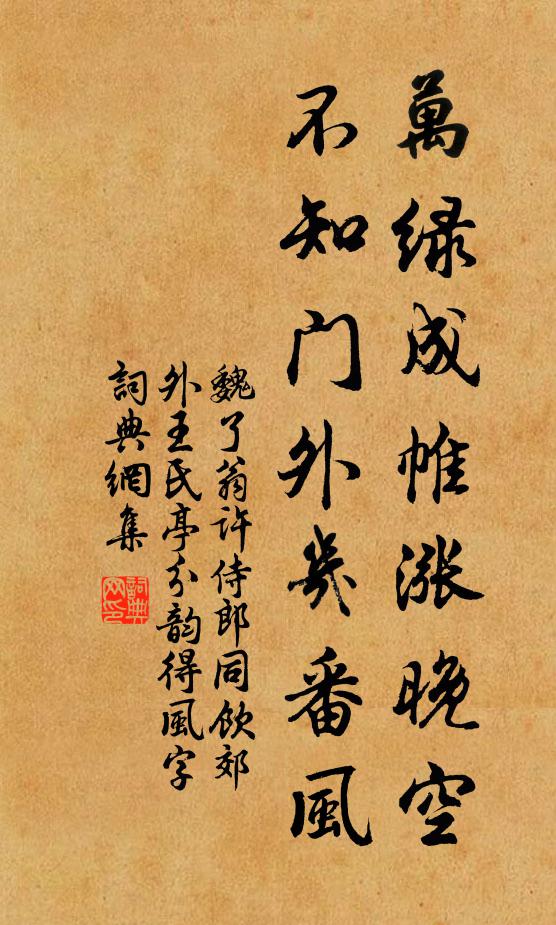 萬緑成帷漲晚空
不知门外幾番風
魏了翁许侍郎同飲郊
外王氏亭分韵得風字
詞典網集
詞典網印